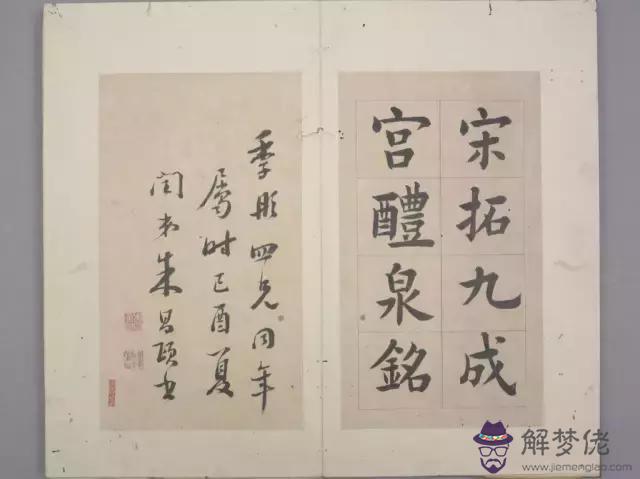 宋拓九成
宫醴泉銘
季彤四兄同年
屬時己酉夏
閏弟朱昌頤書
解梦佬
www.jiemenglao.com